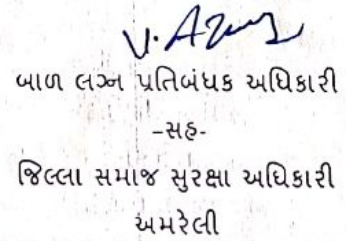 બાળ લગ્ન પ્રતિબંધક અધિકારી
-સહ-
જિલ્લા સમાજ સુરક્ષા અધિકારી
અમરેલી